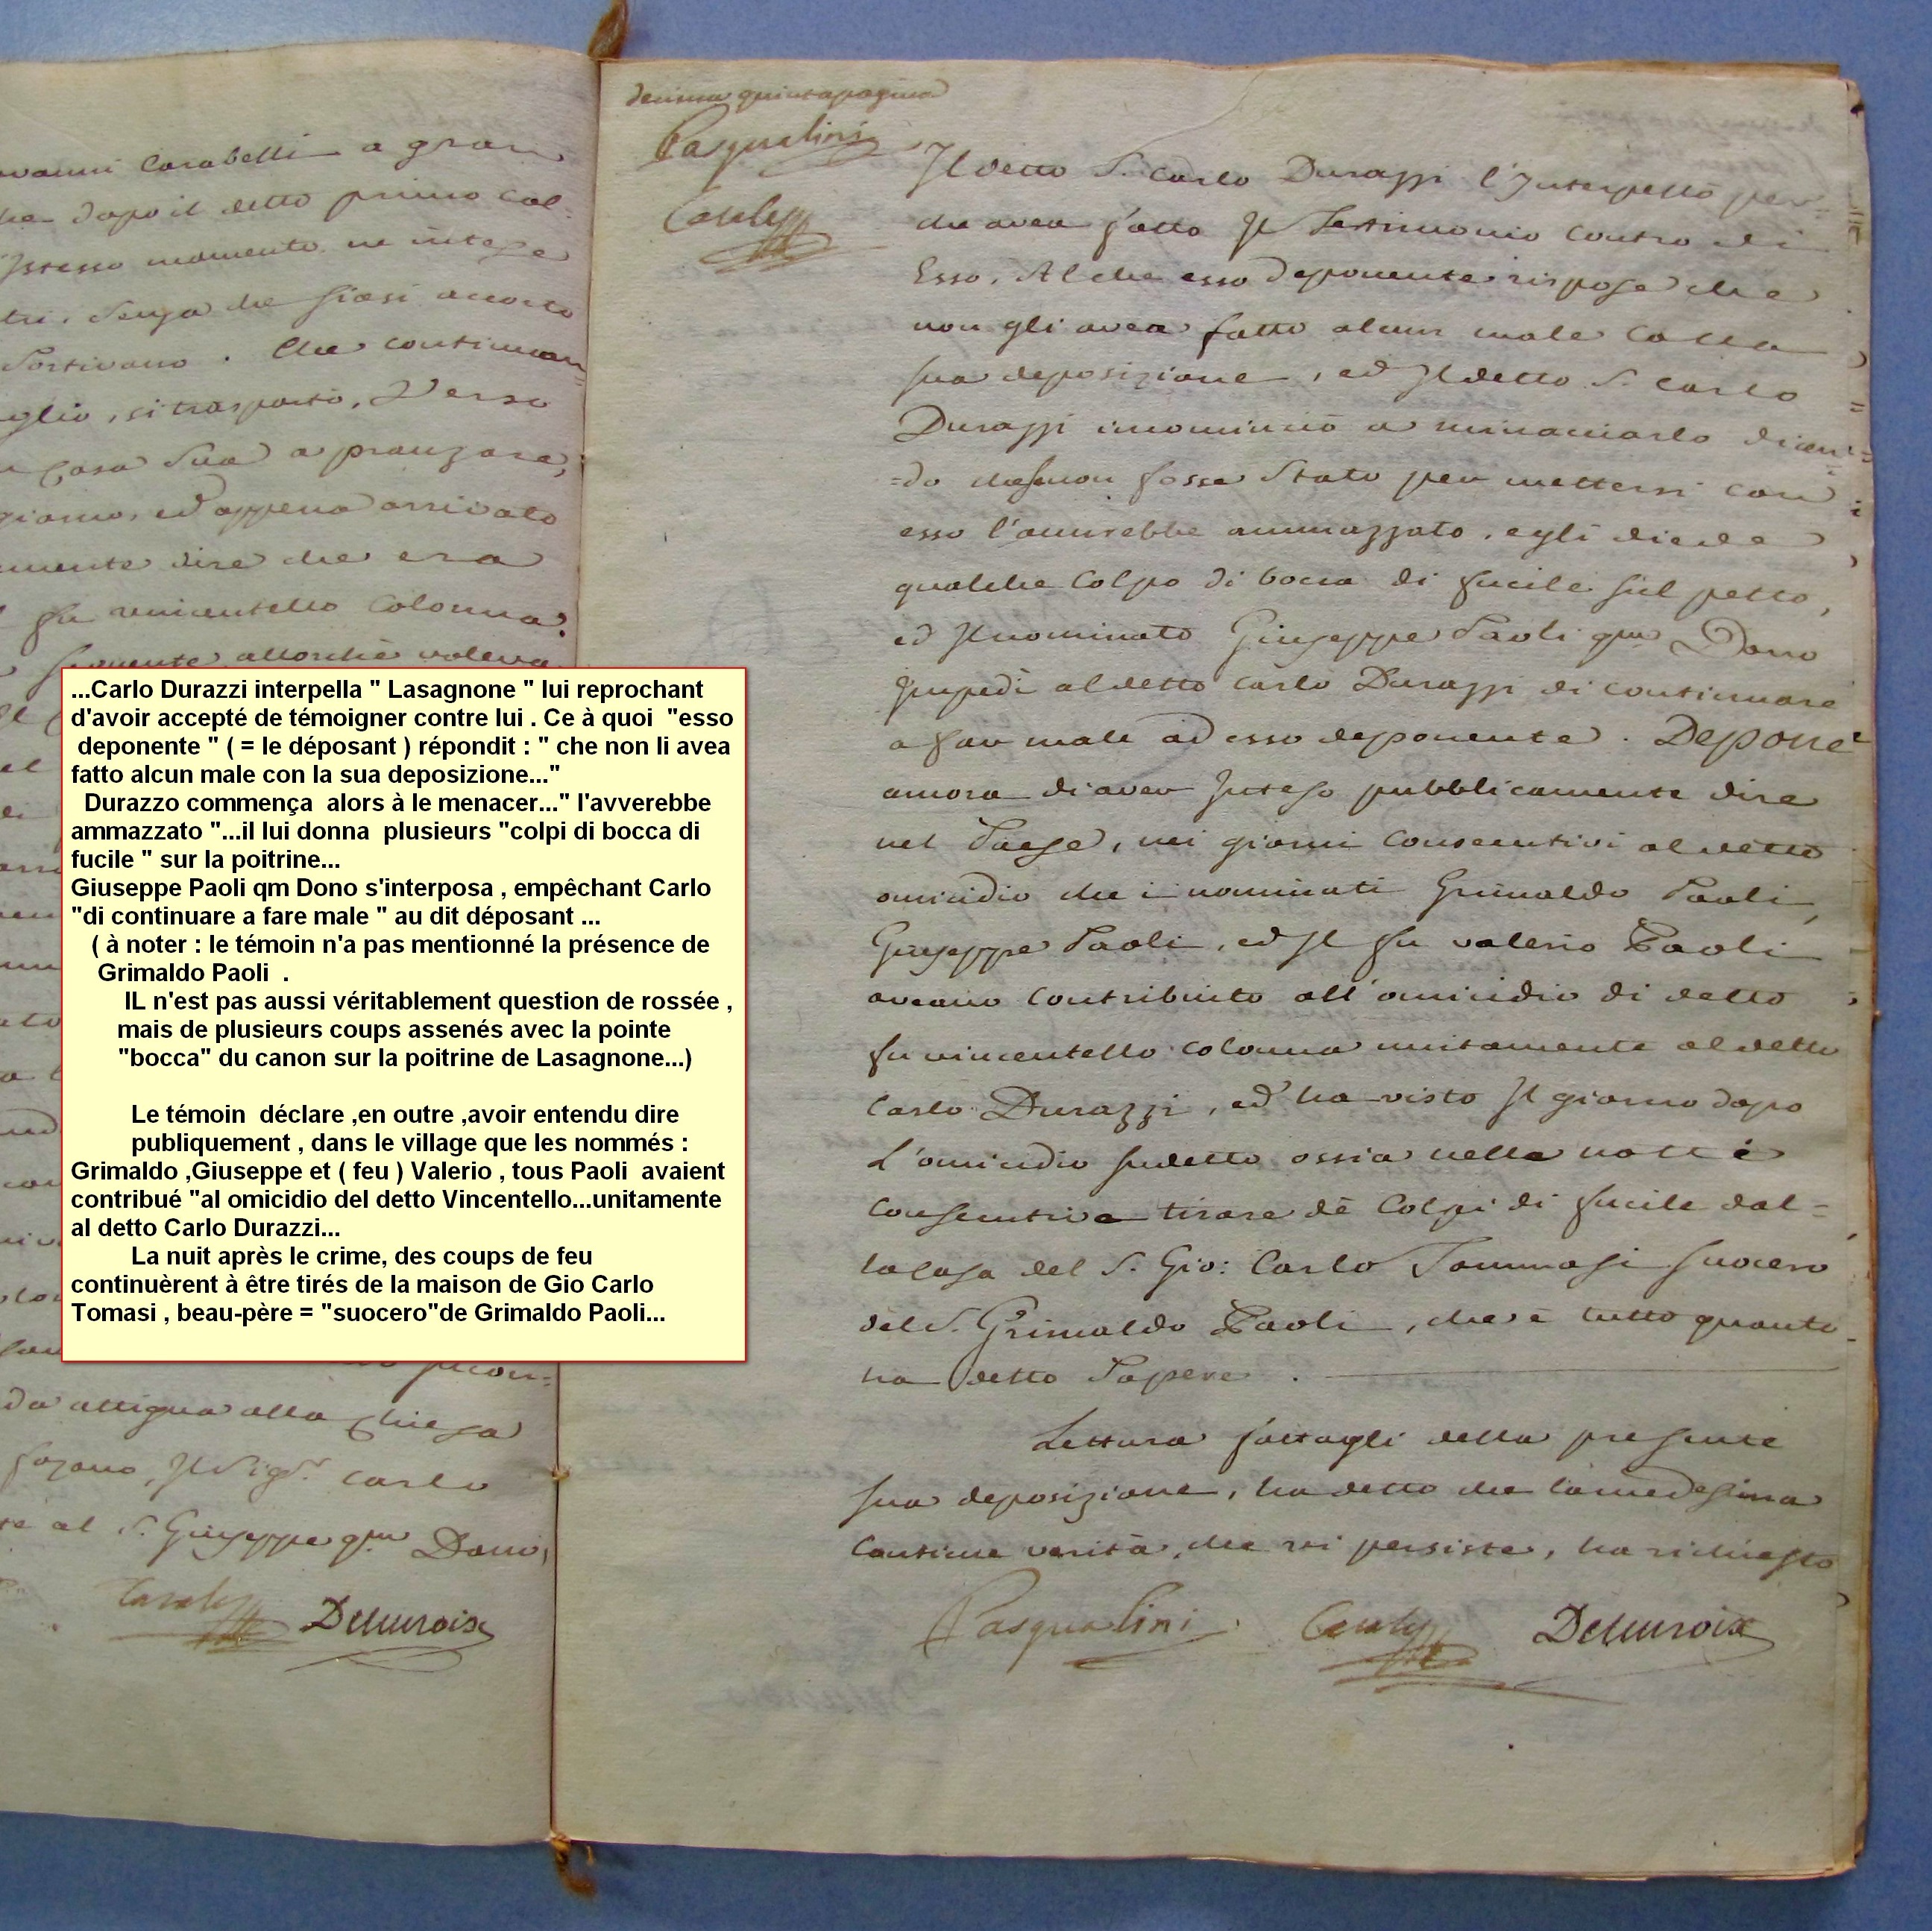 ovanni Carabelli a gran
che dopo il detto primo col=
Istesso momento ne intese
tri, senza che siasi accorto
sortivano. Che continuan=
glio, si trasportò, Verso
Casa Sua a pranzare,
giorno, ed appena arrivato
mente dire che era
fu vincentello Colonna.
seguente allorchè voleva
...Carlo Durazzi interpella " Lasagnone " lui reprochant
d'avoir accepté de témoigner contre lui . Ce à quoi "esso
deponente " ( = le déposant ) répondit : " che non li avea
fatto alcun male con la sua deposizione..."
Durazzo commença alors à le menacer..." l'avverebbe
ammazzato "...il lui donna plusieurs "colpi di bocca di
fucile " sur la poitrine...
Giuseppe Paoli qm Dono s'interposa , empêchant Carlo
"di continuare a fare male " au dit déposant ...
( à noter : le témoin n'a pas mentionné la présence de
Grimaldo Paoli .
IL n'est pas aussi véritablement question de rossée ,
mais de plusieurs coups assenés avec la pointe
"bocca" du canon sur la poitrine de Lasagnone...)
Le témoin déclare ,en outre ,avoir entendu dire
publiquement , dans le village que les nommés :
Grimaldo ,Giuseppe et ( feu ) Valerio , tous Paoli avaient
contribué "al omicidio del detto Vincentello...unitamente
al detto Carlo Durazzi...
La nuit après le crime, des coups de feu
continuèrent à être tirés de la maison de Gio Carlo
Tomasi , beau-père = "suocero"de Grimaldo Paoli...
da attigua alla Chiesa
Il Sig.r Carlo
te al S. Giuseppe qm Dono,
Delacroix
decima quinta pagina
Pasqualini
Il detto S. Carlo Durazzi l'Interpellò per=
che avea fatto Il Testimonio contro di
Esso. Al che esso deponente rispose che
non gli avea fatto alcun male Colla
sua deposizione, ed Il detto S. Carlo
Durazzi incominciò a minacciarlo dicen=
=do che se non fosse Stato per mettersi con
esso l'aurebbe ammazzato, egli diede
qualche Colpo di bocca di fucile sul petto,
ed Il nominato Giuseppe Paoli qm Dono
Impedì al detto Carlo Durazzi di continuare
a far male ad esso deponente. Depone
ancora di aver Inteso pubblicamente dire
nel Paese, nei giorni Consecutivi al detto
omicidio che i nominati Grimaldo Paoli,
Giuseppe Paoli, ed Il fu valerio Paoli
aveano Contribuito all'omicidio di detto
fu vincentello Colonna unitamente al detto
Carlo Durazzi, ed ha visto Il giorno dopo
L'omicidio sudetto ossia nella notte
Consecutiva tirare de Colpi di fucile dal=
la Casa del S. Gio: Carlo Tommasi suocero
del S. Grimaldo Paoli, che è tutto quanto
ha detto Sapere.
Lettura fattagli della presente
sua deposizione, ha detto che la medesima
Contiene verità, che vi persiste, ha richiesto
Pasqualini Delacroix